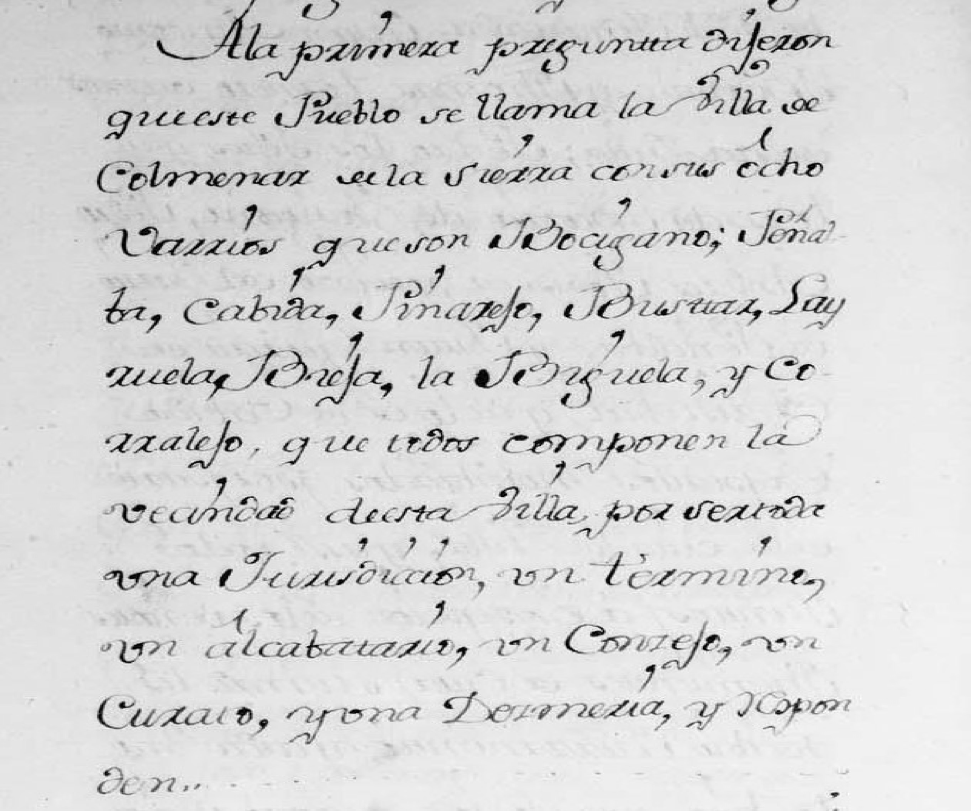 Ala primera preguntta dijeron
que este Pueblo se llama la Villa de
Colmenar de la Sierra con sus ocho
Varrios que son Bocigano; Peñal-
ba, Cabida, Pinarejo, Bustar, Lay
ruela, Breja, la Biguela, y Co-
rralejo, que todos componen la
vecindad de esta Villa, por ser toda
una Jurisdicion, un termino,
un alcabatario, un Conzejo, un
Curato, y una Dezmeria, y Respon
den..